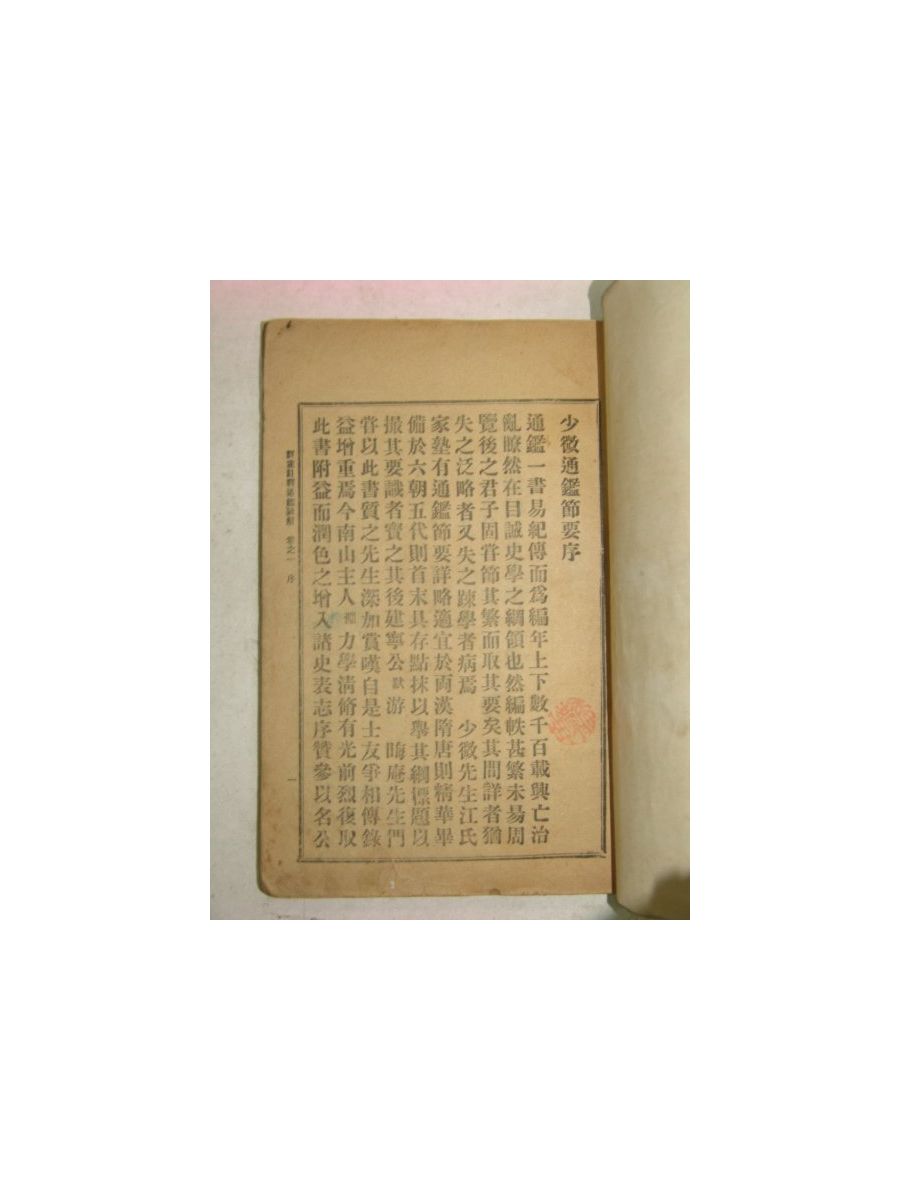 少微通鑑節要序
通鑑一書易紀傳而爲編年上下數千百載興亡治
亂瞭然在目誠史學之綱領也然編帙甚繁未易周
覽後之君子固嘗節其繁而取其要矣其間詳者猶
失之泛略者又失之踈學者病焉 少微先生江氏
家塾有通鑑節要詳略適宜於兩漢隋唐則精華畢
備於六朝五代則首末具存點抹以舉其綱標題以
撮其要識者寶之其後建寧公默游 晦庵先生門
嘗以此書質之先生深加賞嘆自是士友爭相傳錄
益增重焉今南山主人淵力學淸脩有光前烈復取
此書附益而潤色之增入諸史表志序贊參以名公
卷之一 序
一